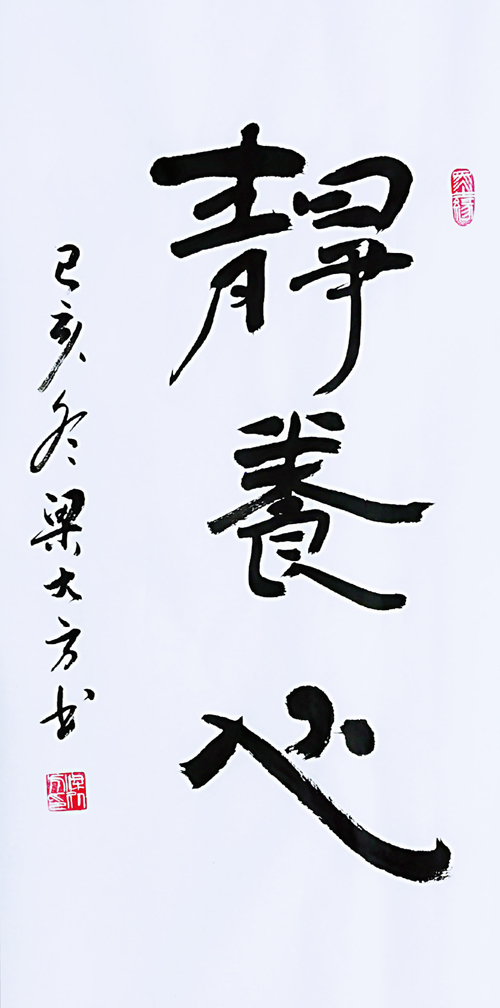 靜養心
己亥冬梁大方书